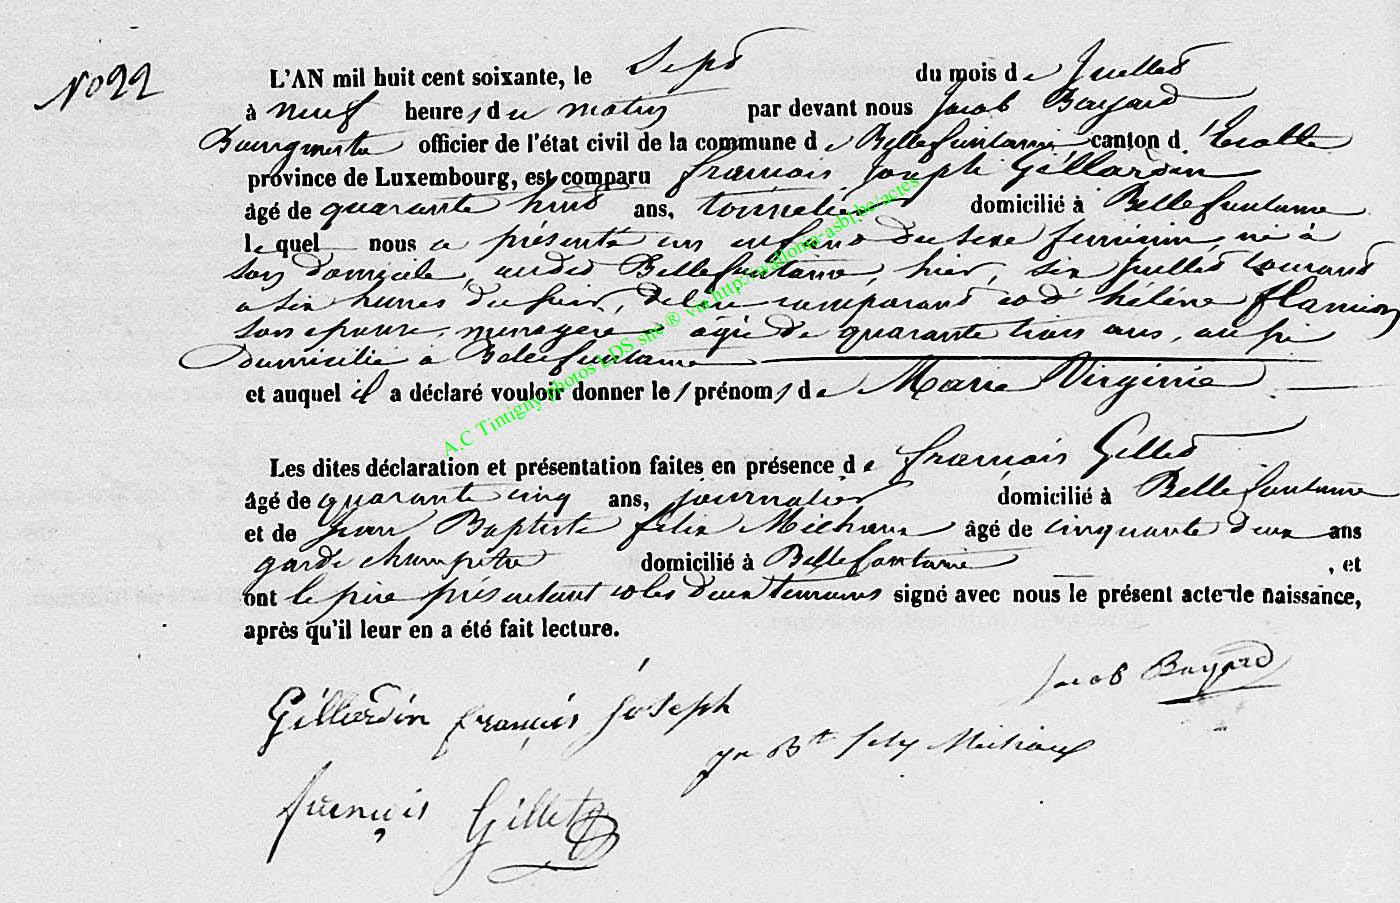 No 22
L'AN mil huit cent soixante, le Sept du mois de Juillet
à neuf heures du matin par devant nous Jacob Bayard
Bourgmestre officier de l'état civil de la commune de Bellefontaine canton d'Etalle
province de Luxembourg, est comparu françois Joseph Gillardin
âgé de quarante huit ans, tonnelier domicilié à Bellefontaine
lequel nous a présenté un enfant du sexe féminin, né à
son domicile, audit Bellefontaine, hier, six Juillet courant
a six heures du soir, de lui comparant et d'hélène flamion
son épouse, menagère âgée de quarante trois ans, aussi
domicilié à Bellefontaine
et auquel il a déclaré vouloir donner les prénoms de Marie Virginie
A.C Tintigny photos LDS site ® via http://wallonia-asbl.be/actes
Les dites déclaration et présentation faites en présence de françois Gillet
âgé de quarante cinq ans, journalier domicilié à Bellefontaine
et de Jean Baptiste félix Michaux âgé de cinquante deux ans
garde champetre domicilié à Bellefontaine , et
ont le père présentant et les deux temoins signé avec nous le présent acte de naissance,
après qu'il leur en a été fait lecture.
Jacob Bayard
Gillardin françois joseph
Jn Bt felix Michaux
françois Gillet